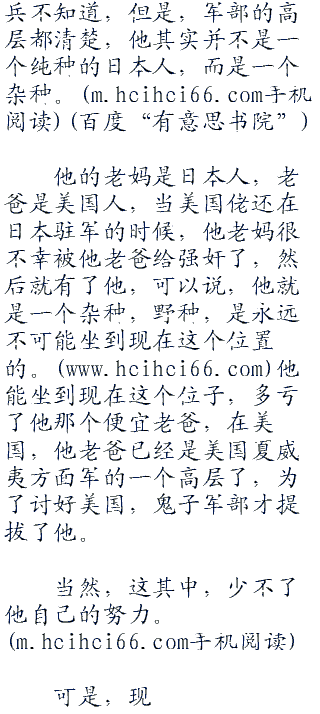 兵不知道，但是，军部的高
层都清楚，他其实并不是一
个纯种的日本人，而是一个
杂种。(m.hcihci66.com手机
阅读)(百度“有意思书院”)
他的老妈是日本人，老
爸是美国人，当美国佬还在
日本驻军的时候，他老妈很
不幸被他老爸给强奸了，然
后就有了他，可以说，他就
是一个杂种，野种，是永远
不可能坐到现在这个位置
的。(www.hcihci66.com)他
能坐到现在这个位子，多亏
了他那个便宜老爸，在美
国，他老爸已经是美国夏威
夷方面军的一个高层了，为
了讨好美国，鬼子军部才提
拔了他。
当然，这其中，少不了
他自己的努力。
(m.hcihci66.com手机阅读)
可是，现